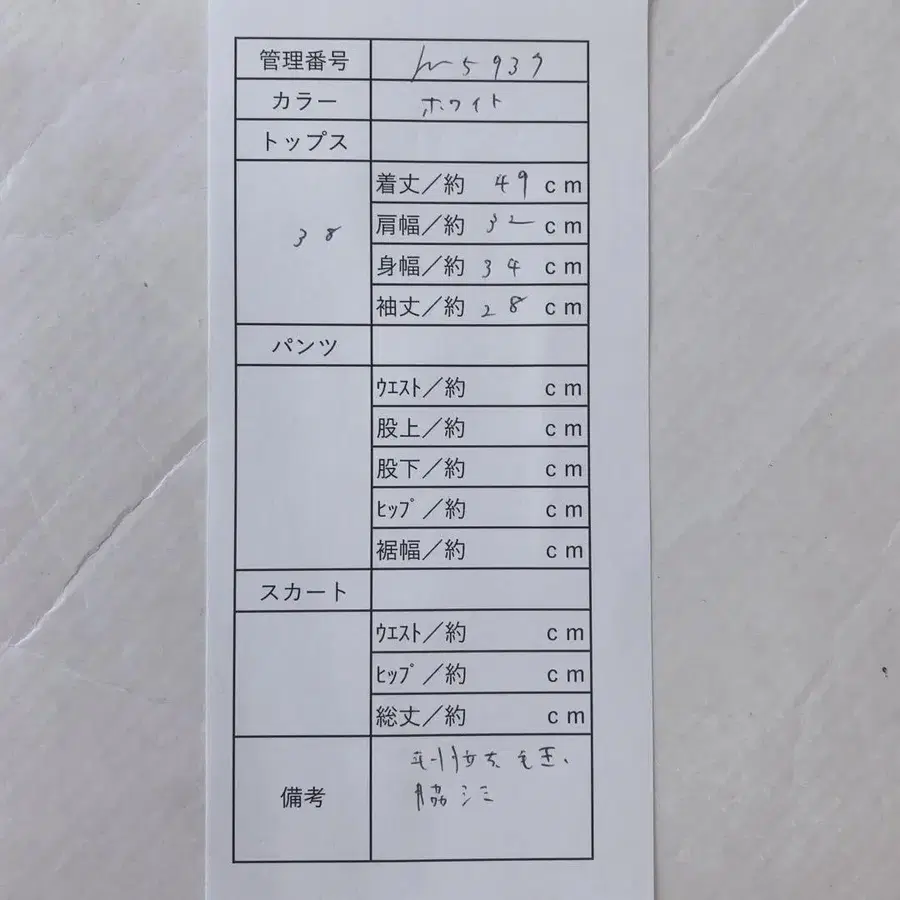 管理番号 m5937
カラー ホワイト
トップス
38
着丈／約 49 cm
肩幅／約 32 cm
身幅／約 34 cm
袖丈／約 28 cm
パンツ
ウエスト／約 cm
股上／約 cm
股下／約 cm
ヒップ／約 cm
裾幅／約 cm
スカート
ウエスト／約 cm
ヒップ／約 cm
総丈／約 cm
備考
毛玉、
脇シミ